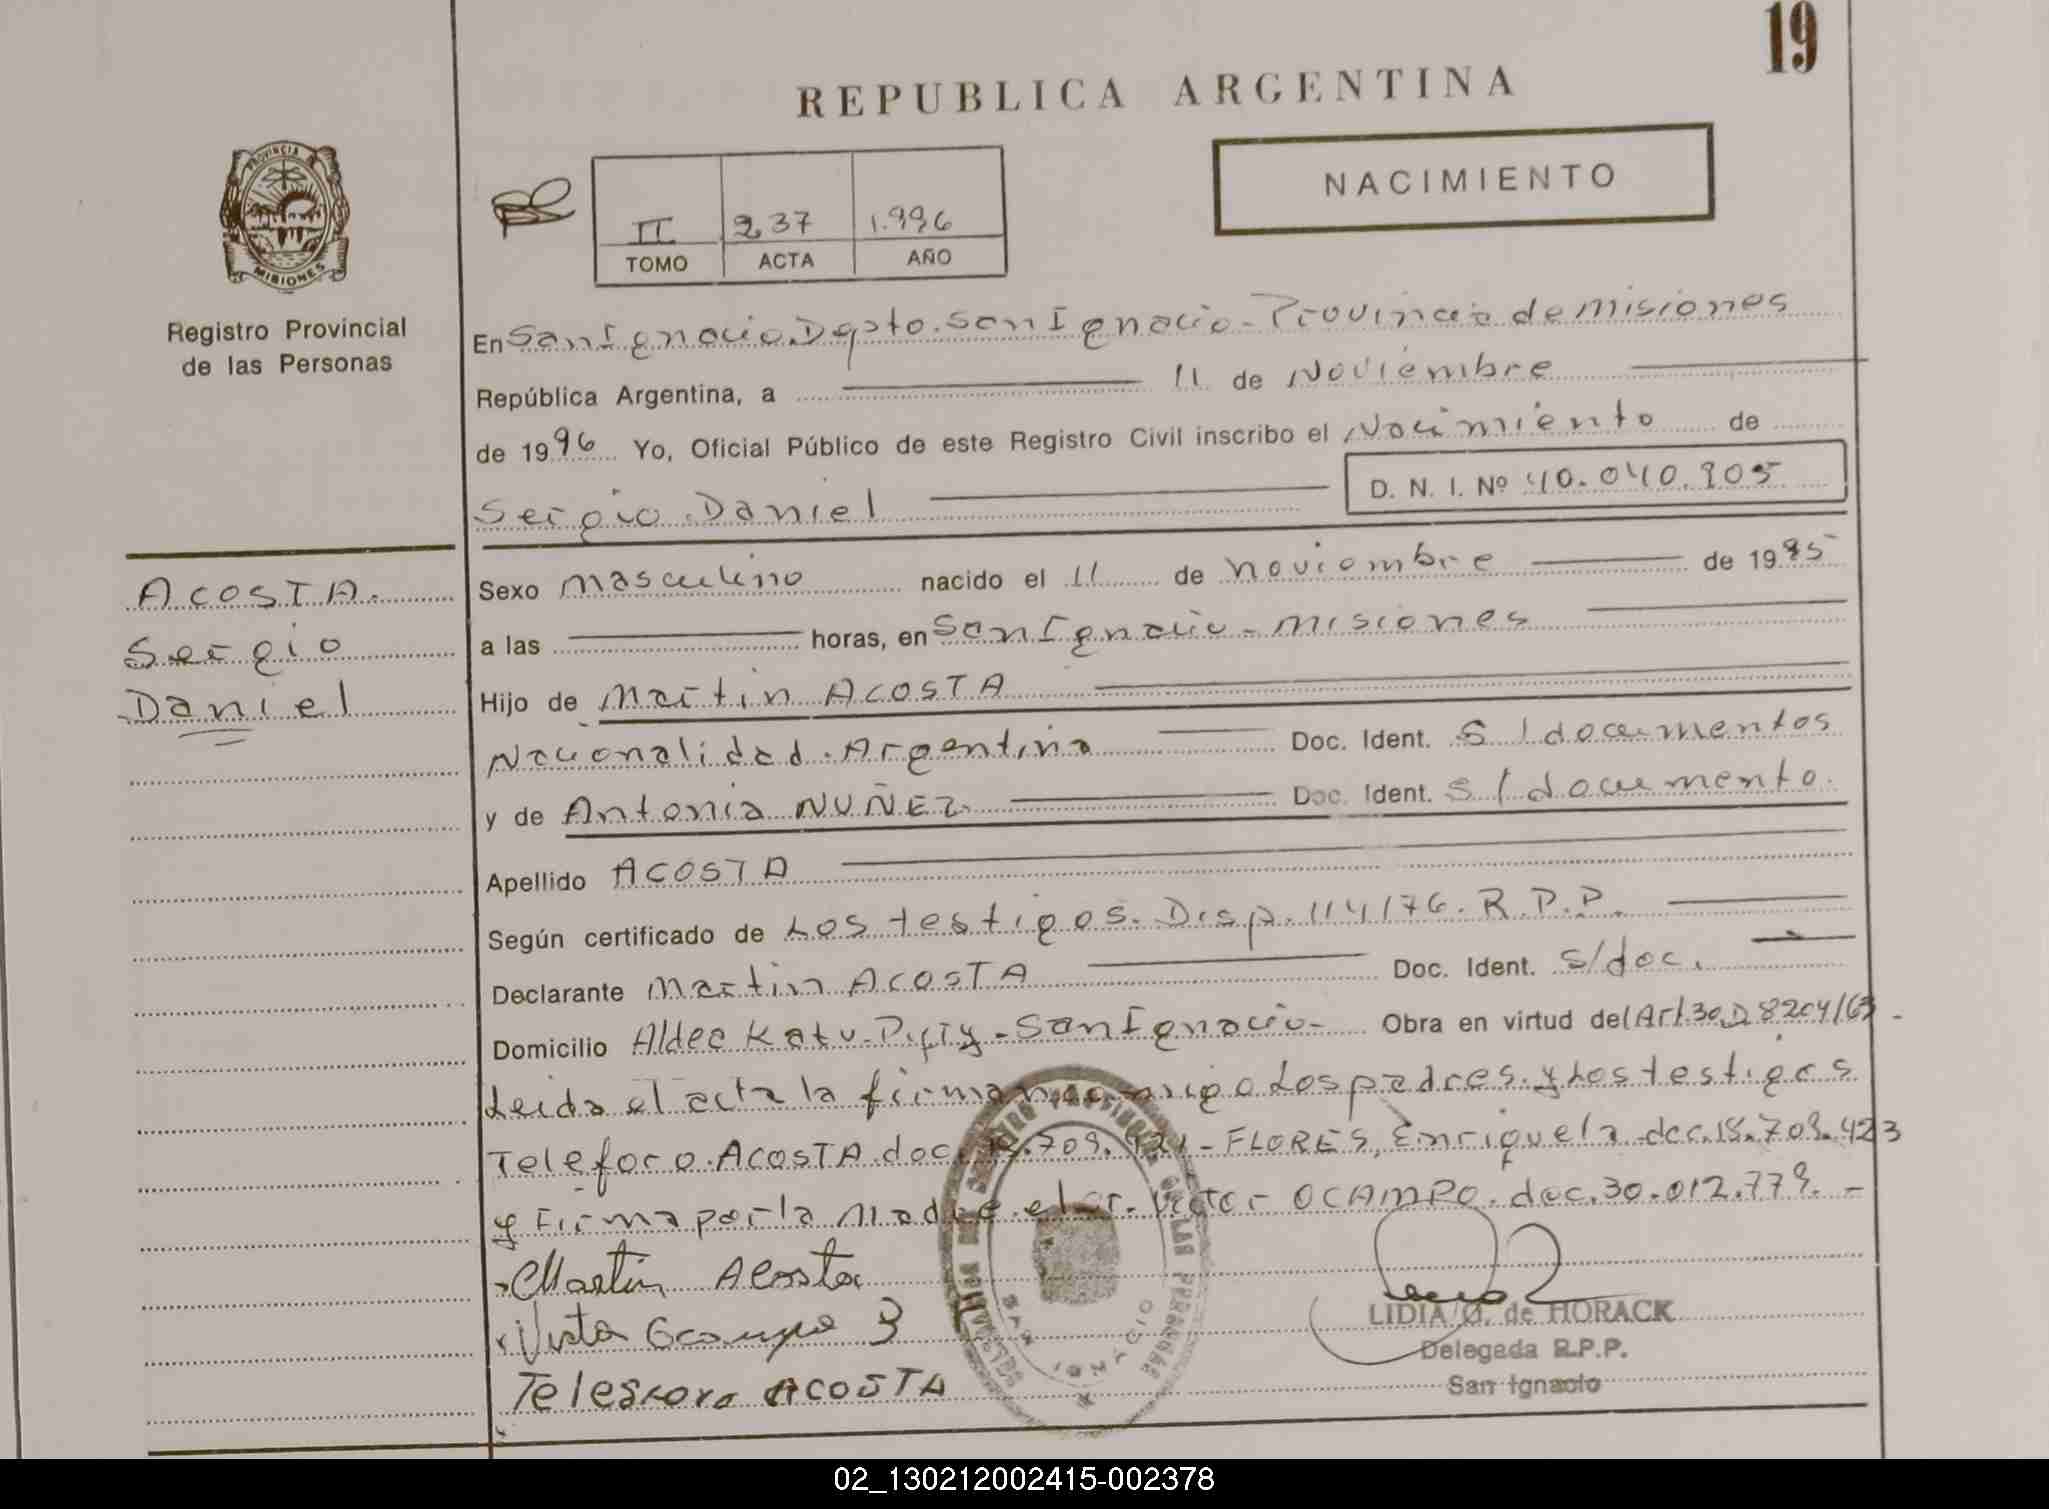 19
REPUBLICA ARGENTINA
NACIMIENTO
PROVINCIA
MISIONES
Registro Provincial
de las Personas
II 237 1.996
TOMO ACTA AÑO
En San Ignacio. Dpto. San Ignacio - Provincia de misiones
República Argentina, a 11 de Noviembre
de 1996 Yo, Oficial Público de este Registro Civil inscribo el Nacimiento de
Sergio Daniel D. N. I. Nº 40.040.905
ACOSTA.
Sergio
Daniel
Sexo masculino nacido el 11 de noviembre de 1995
a las horas, en San Ignacio - misiones
Hijo de Martin ACOSTA
Nacionalidad. Argentina Doc. Ident. S/documentos
y de Antonia NUÑEZ. Doc. Ident. S/documento.
Apellido ACOSTA
Según certificado de Los testigos. Disp. 114/76. R.P.P.
Declarante Martin ACOSTA Doc. Ident. S/doc.
Domicilio Aldea Katu - San Ignacio - Obra en virtud del Art. 30 D 8204/63 -
Leida el acta la firman conmigo Los padres y Los testigos
Teleforo ACOSTA doc. - FLORES, Enriquela doc. 18.709.423
y Firma por la Madre el sr. Victor OCAMPO. doc. 30.012.779. -
Martin Acosta
Ocampo
ACOSTA
SAN IGNACIO
LIDIA G. de HORACK
Delegada R.P.P.
San Ignacio
02_130212002415-002378